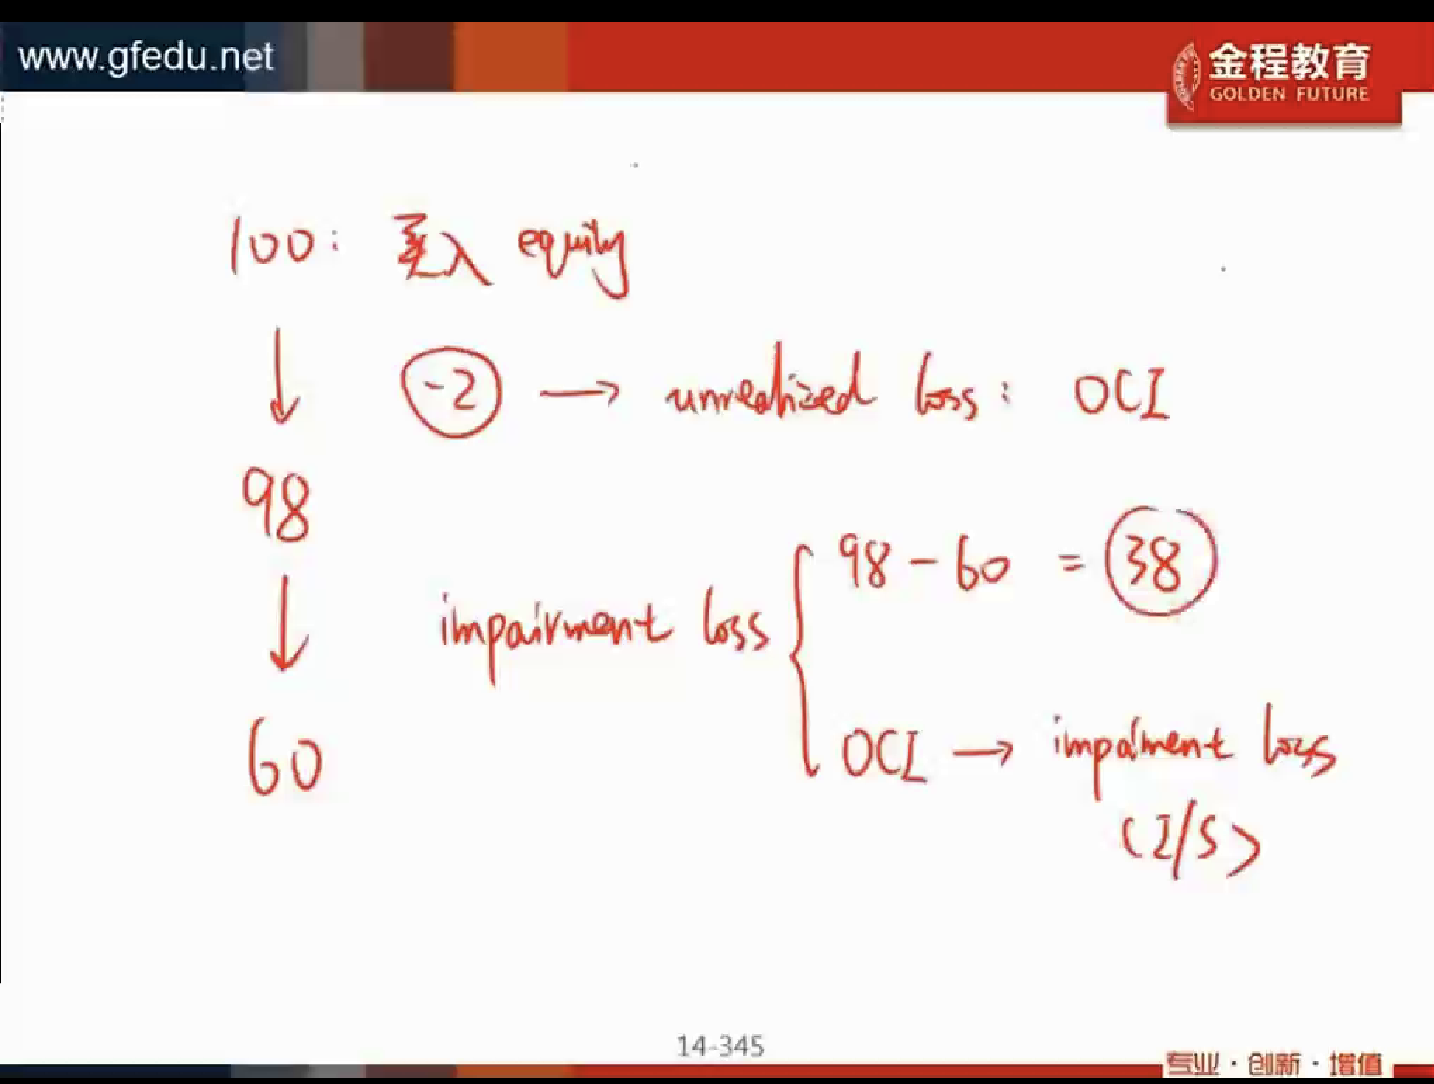 www.gfedu.net
金程教育
GOLDEN FUTURE
100: 买入 equity
-2 → unrealized loss: OCI
98
98 - 60 = 38
impairment loss
OCI → impalment loss
(I/S)
60
14-345
专业·创新·增值